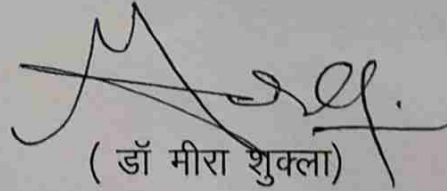 ( डॉ मीरा शुक्ला)